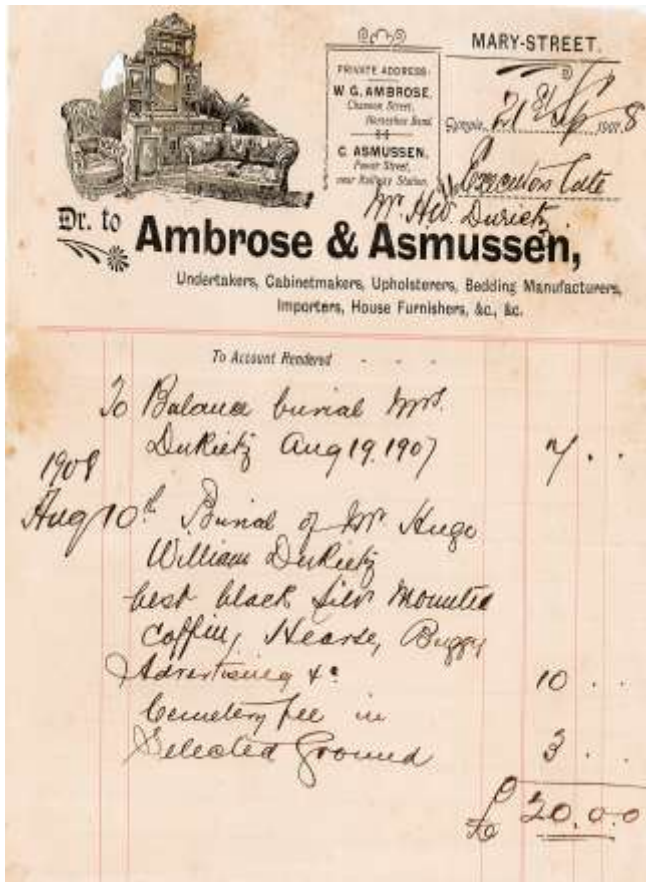 MARY-STREET.
PRIVATE ADDRESS:
W. G. AMBROSE,
Channon Street,
Horseshoe Bend
C. ASMUSSEN,
Power Street,
near Railway Station.
Gympie, 21st Sep 1908
Executors late
Mr. H.W. Durietz
Dr. to Ambrose & Asmussen,
Undertakers, Cabinetmakers, Upholsterers, Bedding Manufacturers,
Importers, House Furnishers, &c., &c.
To Account Rendered - - -
To Balance burial Mrs.
DuRietz Aug 19. 1907 7 . .
1908
Aug 10th Burial of Mr Hugo
William DuRietz
best black Silv Mounted
Coffin, Hearse, Buggy
Advertising &c 10 . .
Cemetery fee in
Selected Ground 3 . .
£ 20.0.0